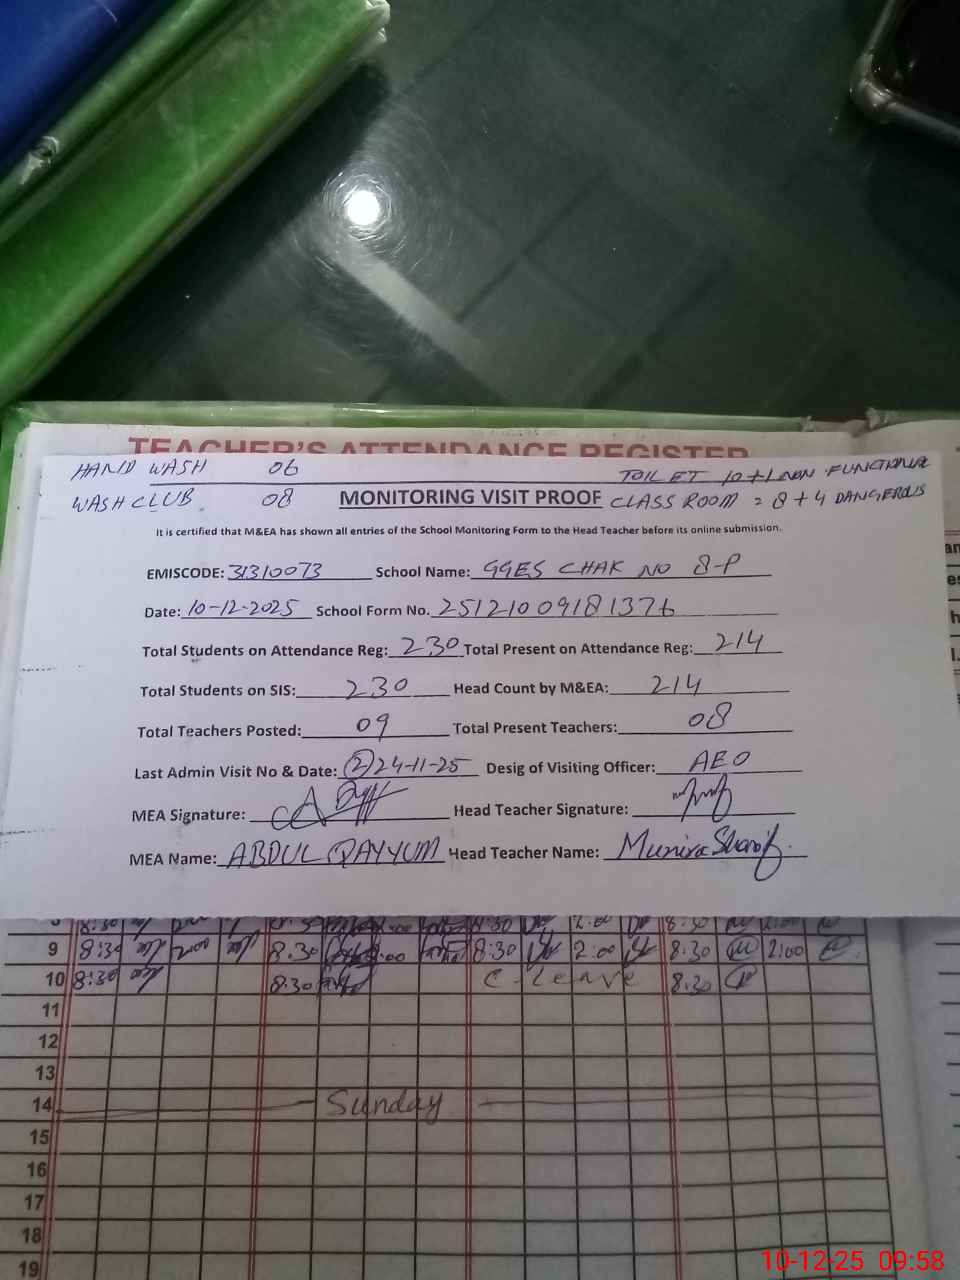 TEACHER'S ATTENDANCE REGISTER
HAND WASH 06 TOILET 10+1 NON FUNCTIONAL
WASH CLUB 08 MONITORING VISIT PROOF CLASS ROOM = 8 + 4 DANGEROUS
It is certified that M&EA has shown all entries of the School Monitoring Form to the Head Teacher before its online submission.
EMISCODE: 31310073 School Name: GGES CHAK NO 8-P
Date: 10-12-2025 School Form No. 25121009181376
Total Students on Attendance Reg: 230 Total Present on Attendance Reg: 214
Total Students on SIS: 230 Head Count by M&EA: 214
Total Teachers Posted: 09 Total Present Teachers: 08
Last Admin Visit No & Date: (2) 24-11-25 Desig of Visiting Officer: AEO
MEA Signature: Head Teacher Signature:
MEA Name: ABDUL QAYYUM Head Teacher Name: Munira Sharif
8:30 8:30 2:00 8:30 2:00
9 8:30 8.30 8:30 2:00 8.30 2:00
10 8:30 8.30 C Leave 8.30
11
12
13
14 Sunday
15
16
17
18
19
10-12-25 09:58